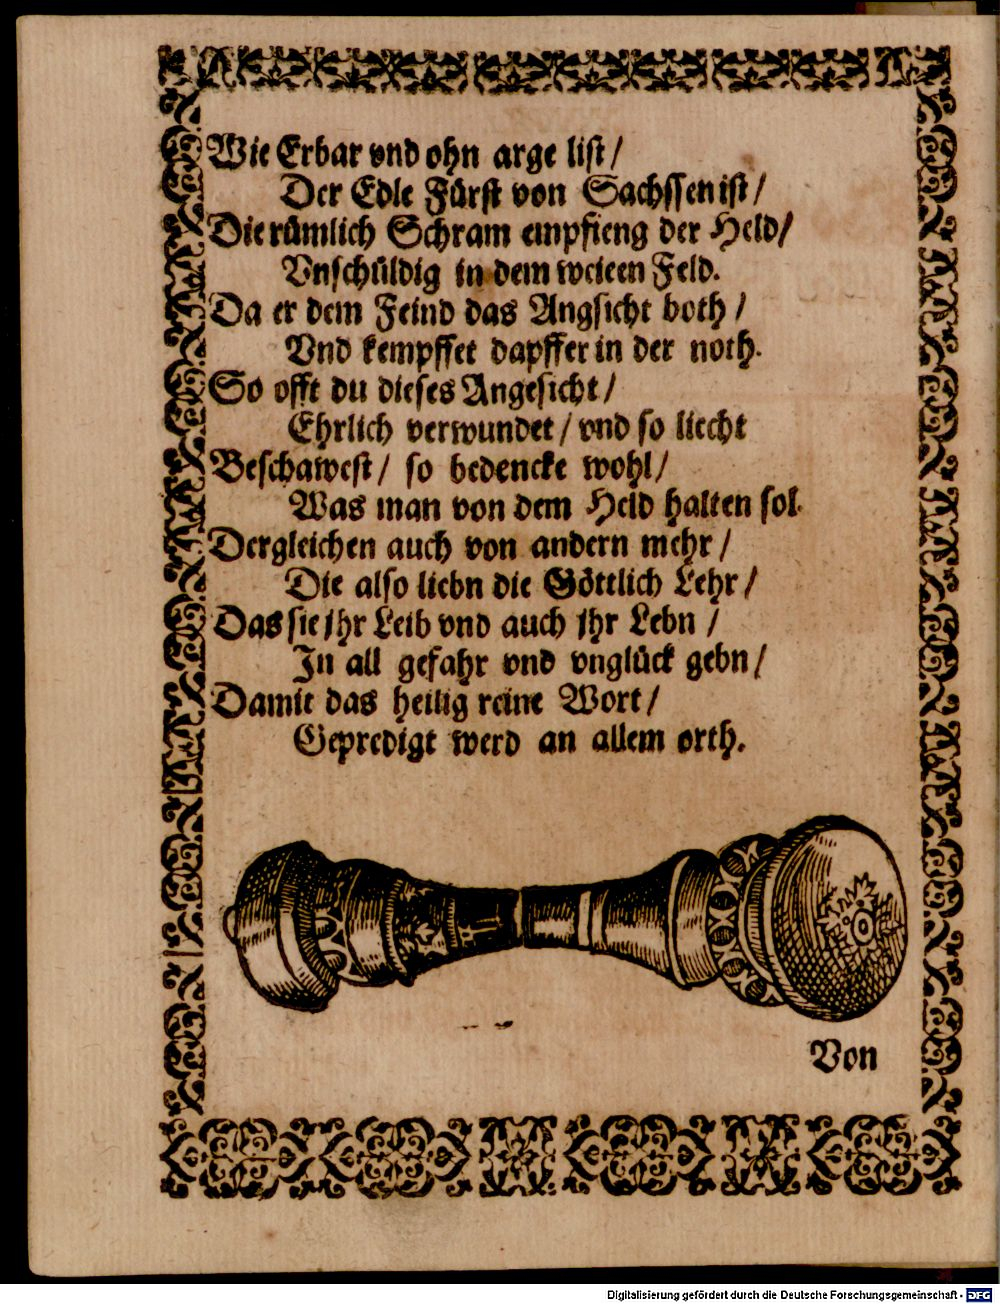 Wie Erbar vnd ohn arge list /
Der Edle Fürst von Sachssen ist /
Die rümlich Schram empfieng der Held /
Vnschüldig in dem weieen Feld.
Da er dem Feind das Angsicht both /
Vnd kempffet dapffer in der noth.
So offt du dieses Angesicht /
Ehrlich verwundet / vnd so liecht
Beschawest / so bedencke wohl /
Was man von dem Held halten sol.
Dergleichen auch von andern mehr /
Die also liebn die Göttlich Lehr /
Das sie jhr Leib vnd auch jhr Lebn /
In all gefahr vnd vnglück gebn /
Damit das heilig reine Wort /
Gepredigt werd an allem orth.
Von
Digitalisierung gefördert durch die Deutsche Forschungsgemeinschaft - DFG